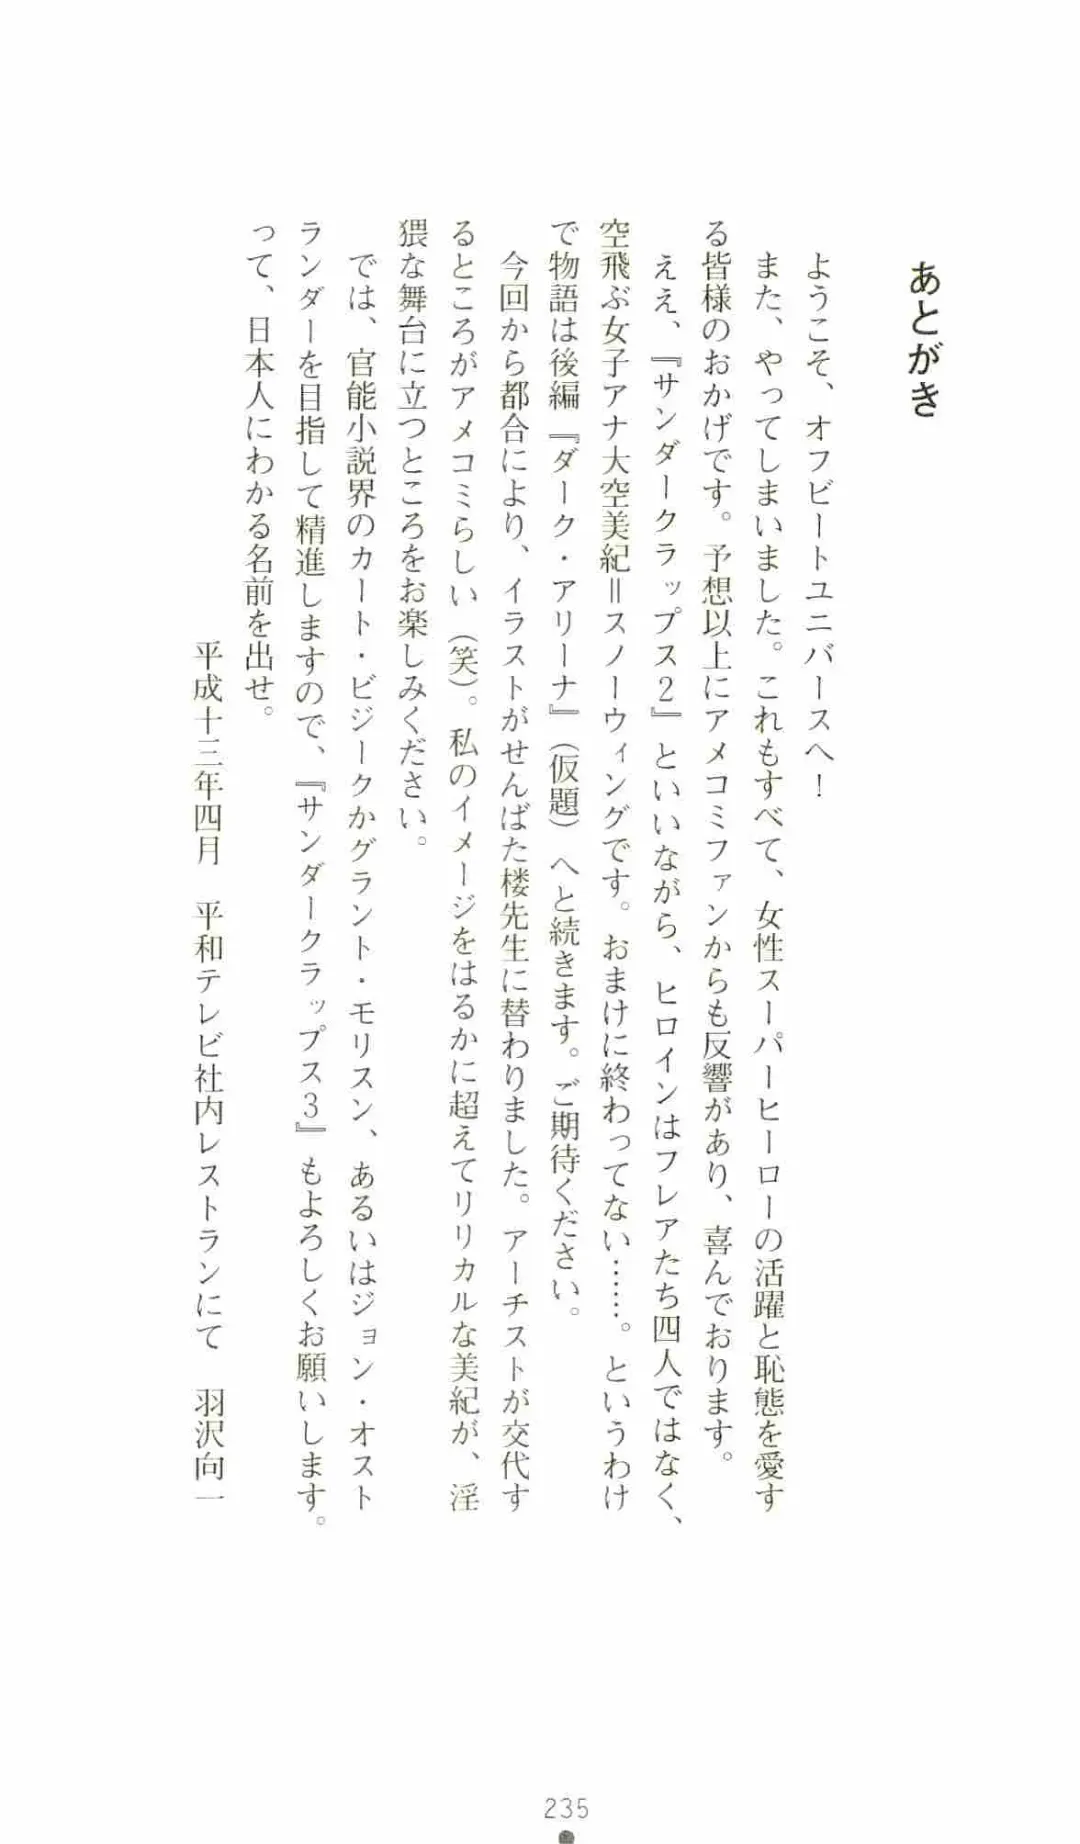 あとがき
ようこそ、オフビートユニバースへ！
また、やってしまいました。これもすべて、女性スーパーヒーローの活躍と恥態を愛す
る皆様のおかげです。予想以上にアメコミファンからも反響があり、喜んでおります。
ええ、『サンダークラップス２』といいながら、ヒロインはフレアたち四人ではなく、
空飛ぶ女子アナ大空美紀＝スノーウィングです。おまけに終わってない……。というわけ
で物語は後編『ダーク・アリーナ』（仮題）へと続きます。ご期待ください。
今回から都合により、イラストがせんばた楼先生に替わりました。アーチストが交代す
るところがアメコミらしい（笑）。私のイメージをはるかに超えてリリカルな美紀が、淫
猥な舞台に立つところをお楽しみください。
では、官能小説界のカート・ビジークかグラント・モリスン、あるいはジョン・オスト
ランダーを目指して精進しますので、『サンダークラップス３』もよろしくお願いします。
って、日本人にわかる名前を出せ。
平成十三年四月　平和テレビ社内レストランにて　羽沢向一
235